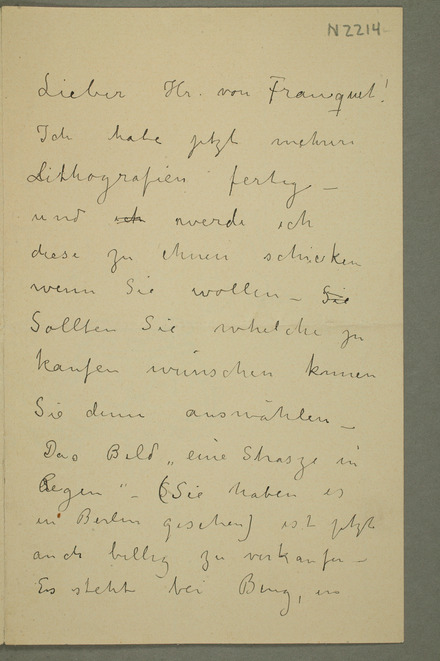 N 2214
Lieber Hr. von Franquet!
Ich habe jtzt mehrere
Lithografien fertig –
und ich werde ich
diese zu ihnen schicken
wenn Sie wollen – Sie
Sollten Sie whelche zu
kaufen wünschen können
Sie denn auswählen –
Das Bild „eine Strasze in
Regen" – (Sie haben es
in Berlin gesehen) ist jtzt
auch billig zu verkaufen –
Es steht bei Bing, in